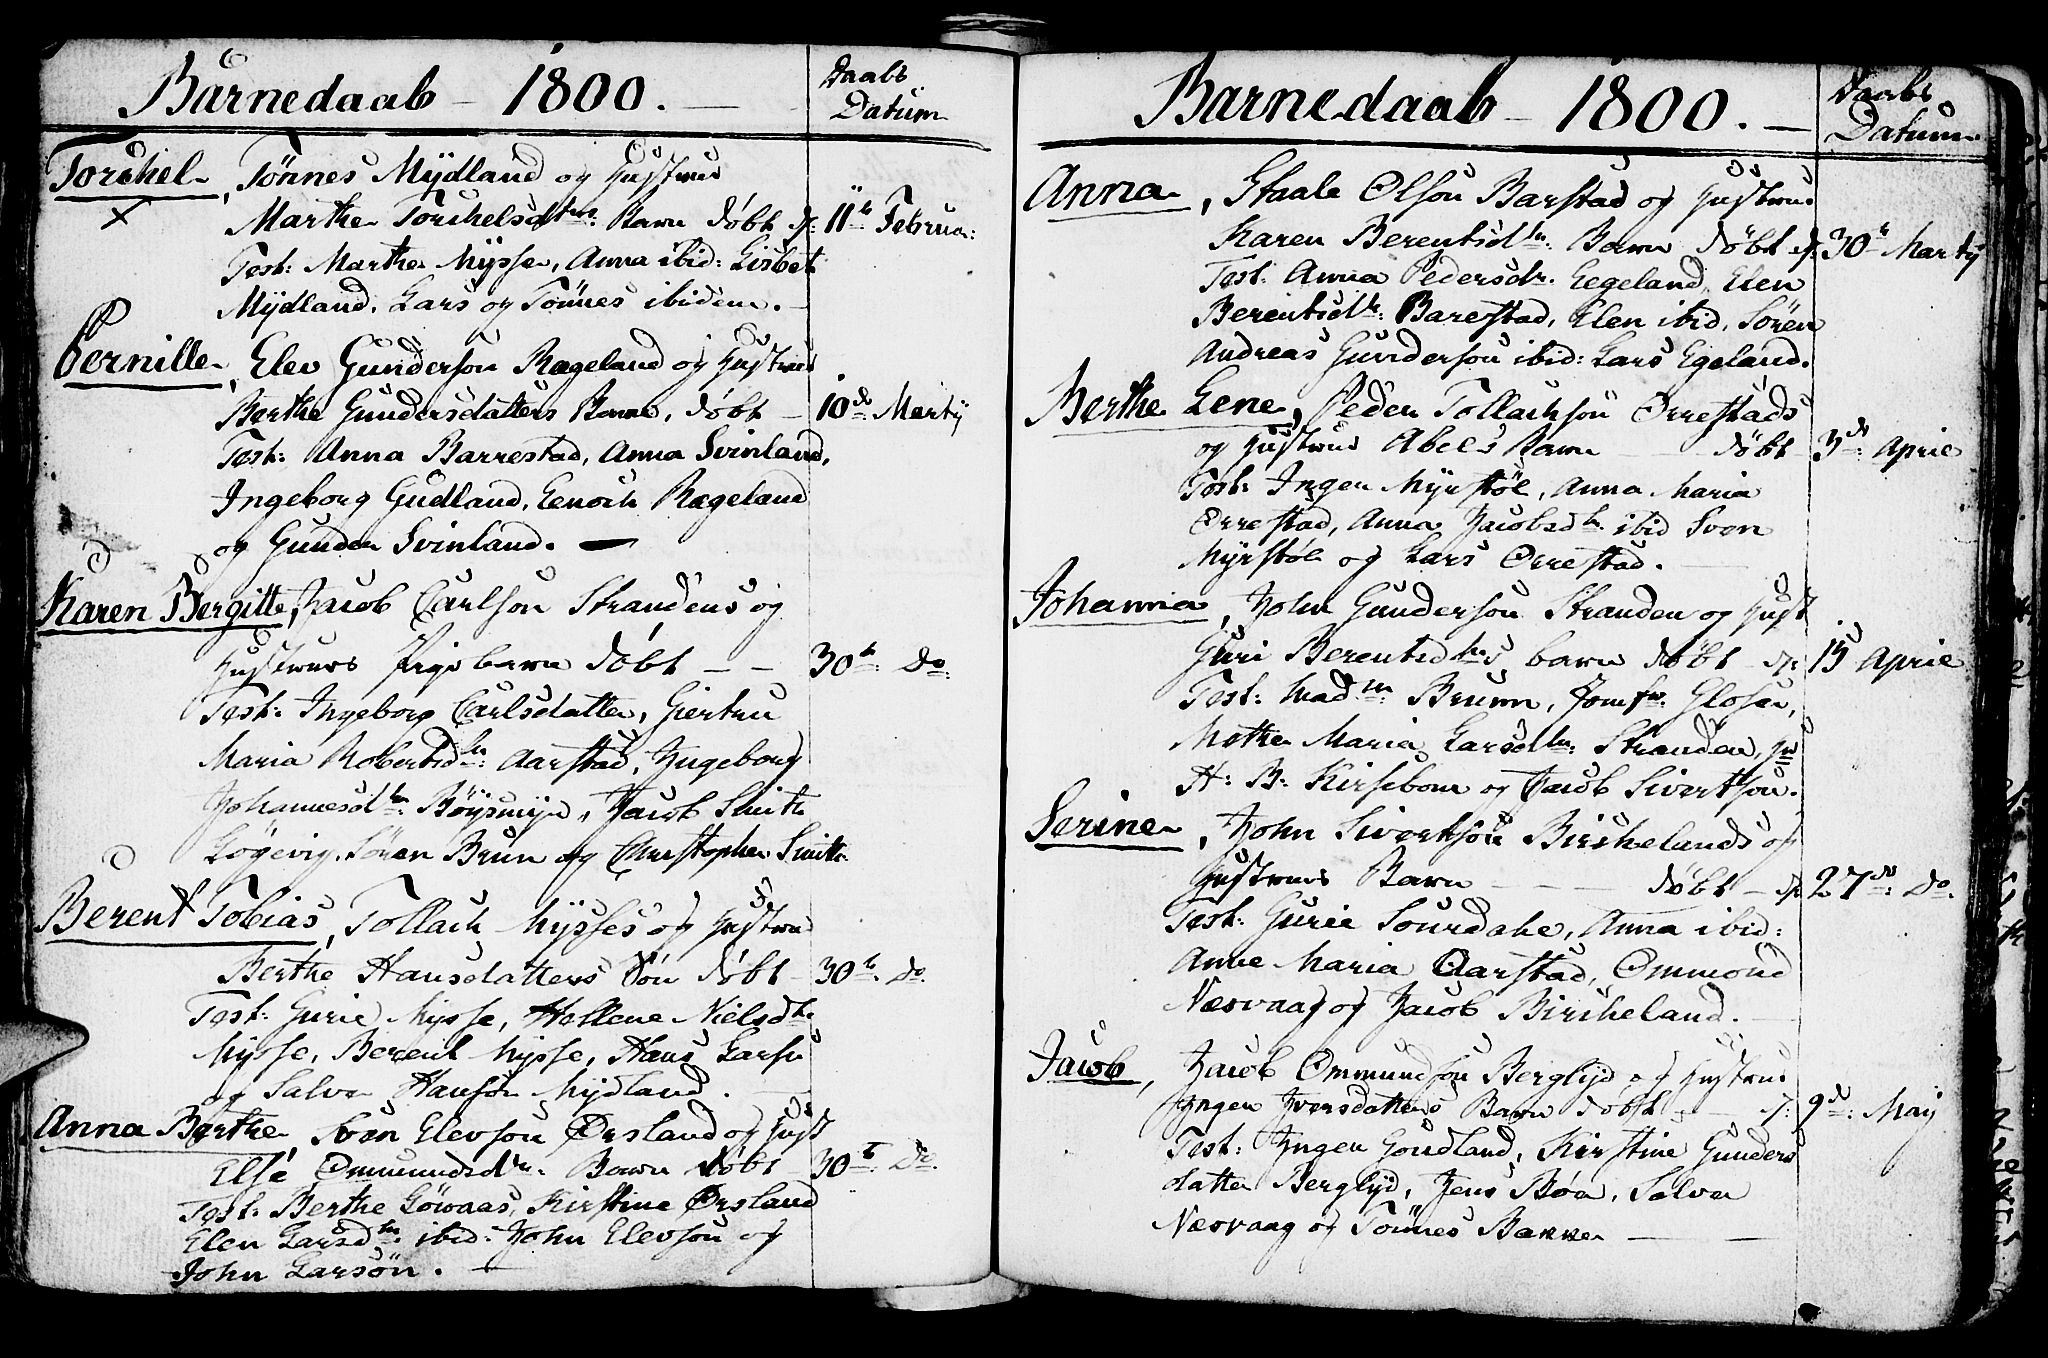 Barnedaab – 1800. –
Daabs
Datum
Torchel, Tönnes Mÿdland og Hustrues
Marthe Torchelsdtrs: Barn döbt d: 11te Februa:
Test: Marthe Mÿsse, Anna ibid: Lisbet
Mÿdland, Lars og Tönnes ibidem. –
Pernille, Elev Gunderson Rægeland og Hustrues
Berthe Gundersdatters Barn, döbt – 10de Martÿ
Test: Anna Barrestad, Anna Svinland,
Ingeborg Gudland, Eenoch Rægeland
og Gunder Svinland. –
Karen Bergitte, Jacob Carlson Strandens og
Hustrues Pigebarn döbt – – 30te: Do:
Test: Ingeborg Carlsdatter, Giertru
Maria Robertsdtr: Aarstad, Ingeborg
Johannesdtr: Böÿsmÿr, Jacob Smith
Lögevig, Sören Brun og Christopher Smith
Berent Tobias, Tollach Mÿsses og Hustrue
Berthe Hansdatters Sön döbt – 30te: Do.
Test: Gurie Mÿsse, Hellene Nielsdtr
Mÿsse, Berent Mÿsse, Hans Larss
og Salve Hanson Mÿdland. –
Anna Berthe, Sven Elevson Örsland og Hust
Else Ommundsdtr. Barn döbt 30te: Do.
Test: Berthe Löwaas, Kirstine Örsland
Elen Larsdtr: ibid: John Elevson og
John Larsön. –
Barnedaab – 1800. –
Daabs
Datum
Anna, Staale Olson Barstad og Hustrues
Karen Berentsdtr: Barn döbt d: 30te Martÿ
Test: Anna Pedersdr. Eegeland, Elen
Berentsdtr: Barestad, Elen ibid, Sören
Andreas Gunderson ibid: Lars Egeland.
Berthe Lene, Peder Tollachson Örrestads
og Hustrues Abels Barn – döbt 3de: April
Test: Inger Mÿrstöl, Anna Maria
Örrestad, Anna Jacobsdtr. ibid Sven
Mÿrstöl og Lars Örrestad. –
Johanna, John Gunderson Stranden og Hust
Guri Berentsdtrs barn döbt d: 15 April
Test: Madm Brunn, Jomfr: Gloser,
Mother Maria Larsdtr: Stranden, Hr
H: B: Kirsebom og Jacob Sivertson.
Serine, John Sivertson Birchelands og
Hustrues Barn – – döbt – d: 27de: Do.
Test: Gurie Souredahl, Anna ibid:
Anne Maria Aarstad, Ommond
Næsvaag og Jacob Bircheland. –
Jacob, Jacob Ommundson Berglÿd og Hustrues
Inger Iversdatters Barn döbt – d: 9de: Maÿ
Test: Inger Goudland, Kirstine Gunders
datter Berglÿd, Jens Böe, Salve
Næsvaag og Tönnes Bakke – –